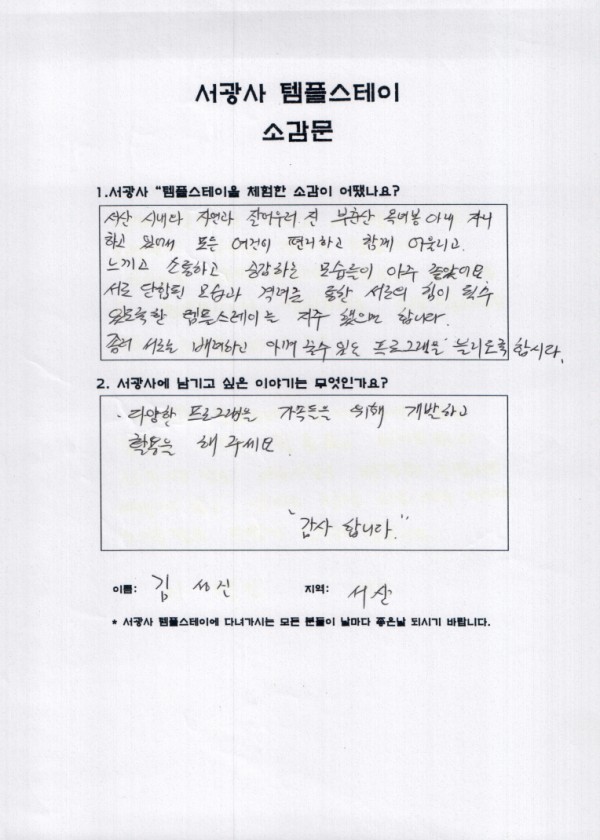 서광사 템플스테이
소감문
1.서광사 "템플스테이을 체험한 소감이 어땠나요?
서산 시내와 자연과 잘어우러 진 부춘산 옥녀봉 아래 자리
하고 있으며 모든 여건이 편리하고 함께 어울리고.
느끼고 소통하고 공감하는 모습들이 아주 좋았어요.
서로 단합된 모습과 격려를 통한 서로의 힘이 될수
있도록한 템플스테이는 자주 했으면 합니다.
좀더 서로를 배려하고 아껴 줄수 있는 프로그램을 늘리도록 합시다.
2. 서광사에 남기고 싶은 이야기는 무엇인가요?
· 다양한 프로그램을 가족들을 위해 개발하고
활동을 해 주세요.
"감사 합니다."
이름: 김 성진 지역: 서산
* 서광사 템플스테이에 다녀가시는 모든 분들이 날마다 좋은날 되시기 바랍니다.